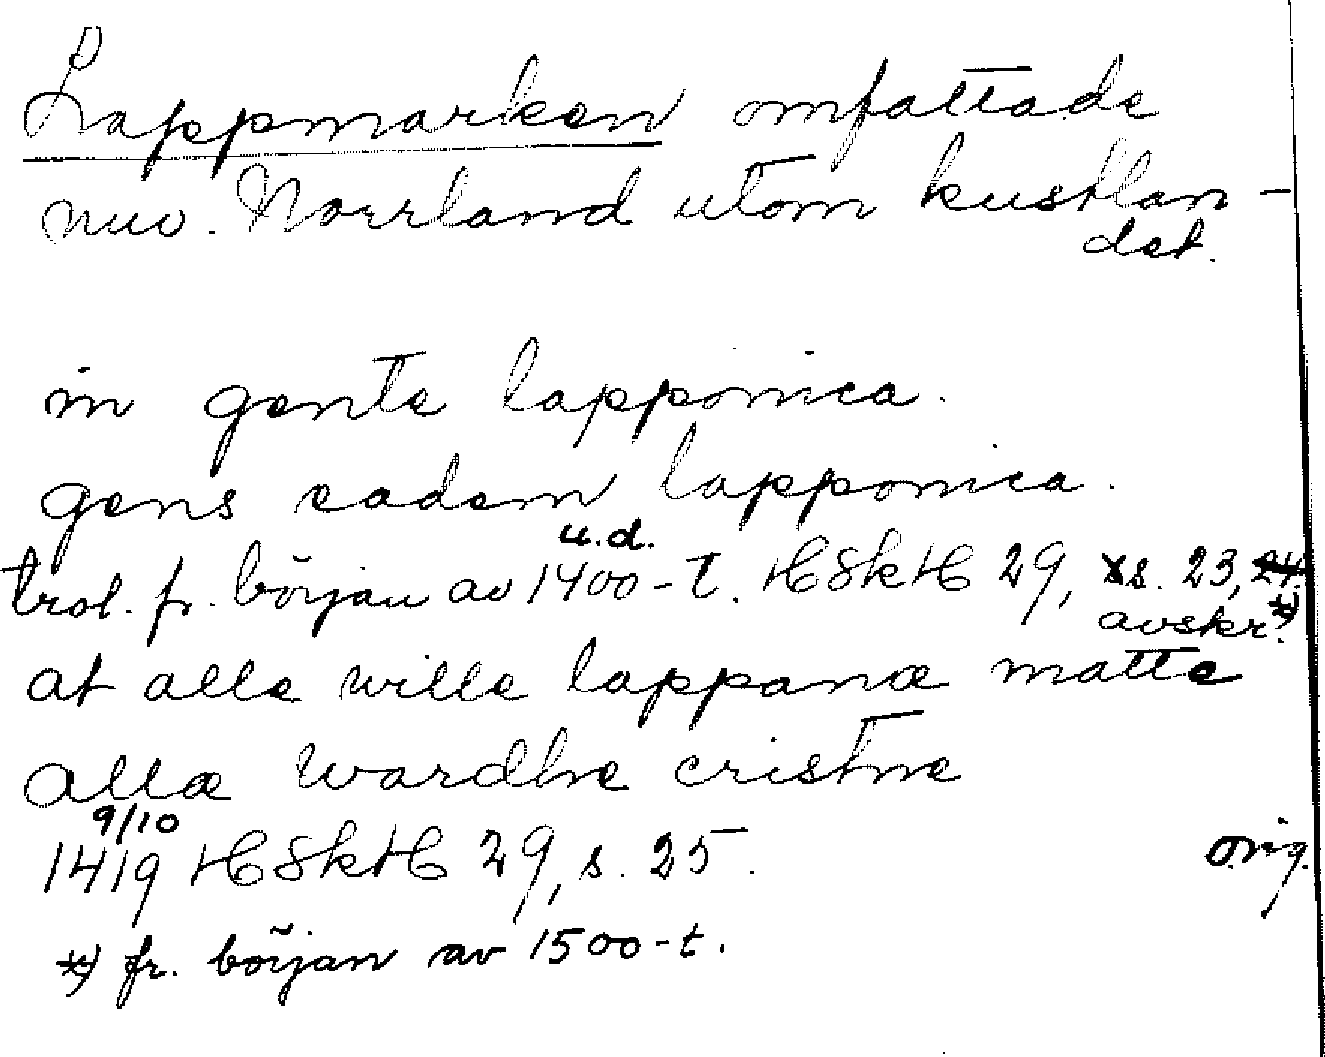 Lappmarken omfattade
nuv. Norrland utom kustlan-
det.
in gente lapponica.
gens eadem lapponica.
u.d.
trol. fr. början av 1400-t. HSkH 29, s. 23,
avskr.*)
at alle wille lappanæ matte
allæ wardhe cristne
9/10
1419 HSkH 29, s. 25. orig.
*) fr. början av 1500-t.